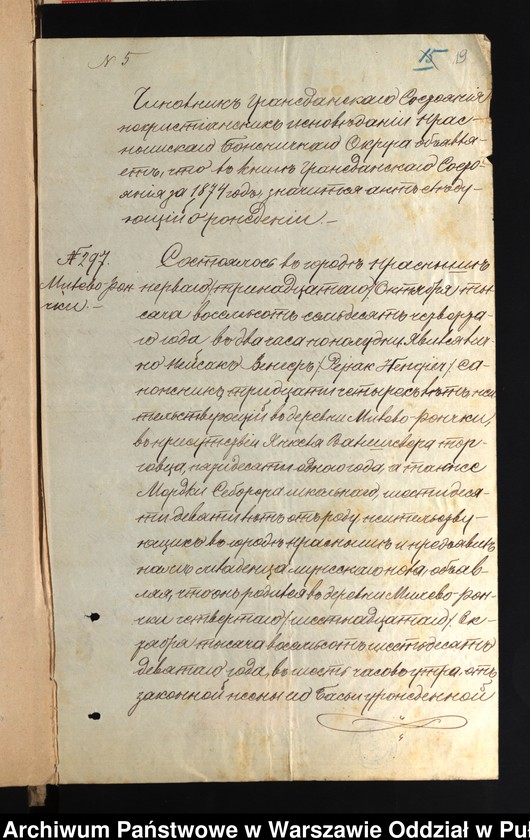 N 5
15 19
Чиновникъ Гражданскаго Состоянія
нехристіанскихъ исповѣданій Крас-
носельскаго Божничнаго Округа объявля-
етъ, что въ книгѣ Гражданскаго Состо-
янія за 1874 годъ, значится актъ слѣду-
ющій о рожденіи. —
№ 297.
Состоялось въ городѣ
перваго /тринадцатаго/ Октября, ты-
сяча восемьсотъ семьдесятъ четверта-
го года въ два часа пополудни. Явился лич-
но Пейсакъ /Pejsak са-
пожникъ тридцати четырехъ лѣтъ жи-
тельствующій въ деревни
въ присутствіи Янкева тор-
говца, пятидесяти одного года, а также
Мордки школьнаго, шестидеся-
ти девяти лѣтъ отъ роду жительству-
ющихъ въ городѣ и предъявилъ
намъ младенца мужескаго пола, объяв-
ляя, что онъ родился въ деревни
четвертаго /шестнадцатаго/ Ок-
тября тысяча восемьсотъ шестьдесятъ
девятаго года, въ шесть часовъ утра, отъ
законной жены его Басы урожденной
Archiwum Państwowe w Warszawie Oddział w Puł